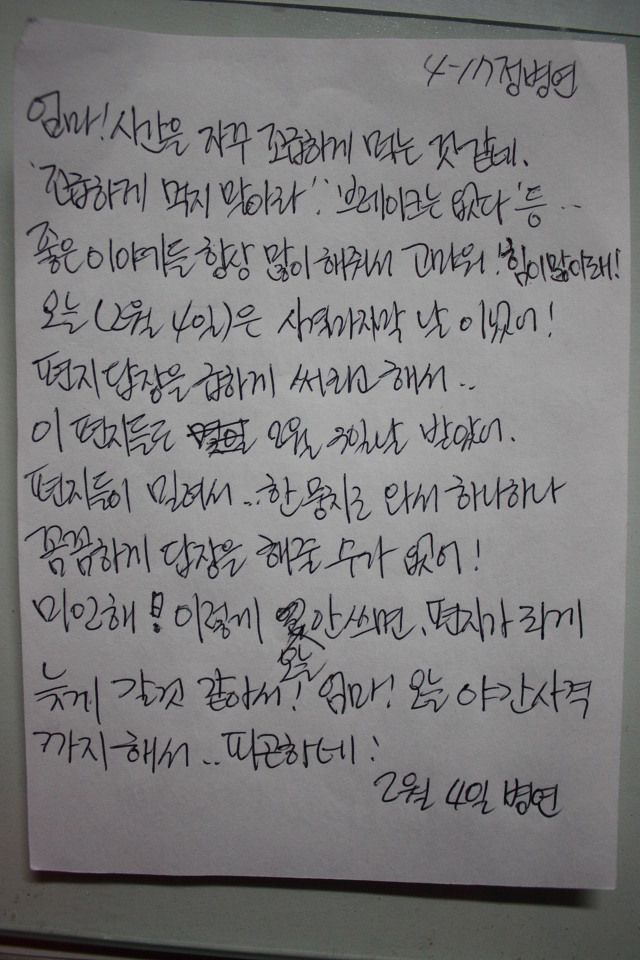 4-17 정병연
엄마! 시간을 자꾸 조급하게 먹는 것같네.
'조급하게 먹지 말아라'. '브레이크는 없다' 등..
좋은 이야기들 항상 많이 해줘서 고마워! 힘이많이돼!
오늘 (2월 4일)은 사격마지막 날 이였어!
편지답장을 급하게 써라고 해서..
이 편지들도 2월 3일날 받았어.
편지들이 밀려서..한 뭉치로 와서 하나하나
꼼꼼하게 답장을 해줄 수가 없어!
미안해! 이렇게 오늘 안쓰면, 편지가 되게
늦게 갈것 같아서! 엄마! 오늘 야간사격
까지 해서..피곤하네!
2월 4일 병연